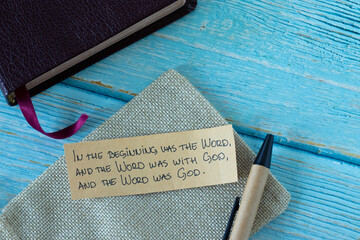 In the beginning was the Word,
and the Word was with God,
and the Word was God.